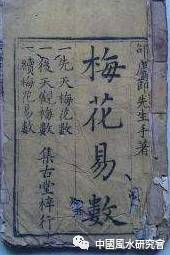 邵康節先生手著
梅花易數
一先天梅花數
一後天觀梅數
一續梅花易數
集古堂梓行
中國風水研究會